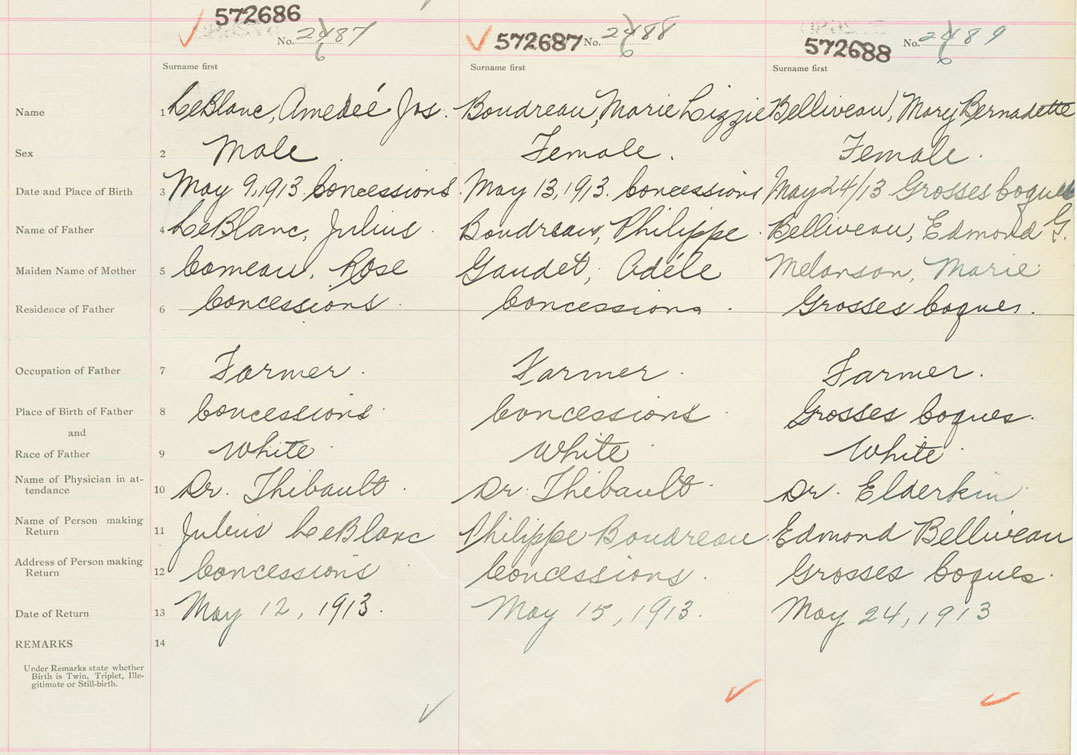 572686 572687 572688
No. 2487 No. 2488 No. 2489
Surname first Surname first Surname first
Name 1 LeBlanc, Amedeé Jos. Boudreau, Marie Lizzie Belliveau, Mary Bernadette
Sex 2 Male. Female. Female.
Date and Place of Birth 3 May 9, 1913. Concessions. May 13, 1913. Concessions May 24/13 Grosses Coques
Name of Father 4 LeBlanc, Julius. Boudreau, Philippe. Belliveau, Edmond G.
Maiden Name of Mother 5 Comeau, Rose Gaudet, Adéle Melanson, Marie
Residence of Father 6 Concessions. Concessions. Grosses Coques.
Occupation of Father 7 Farmer. Farmer. Farmer.
Place of Birth of Father 8 Concessions. Concessions. Grosses Coques.
and
Race of Father 9 White. White. White.
Name of Physician in at-
tendance 10 Dr. Thibault. Dr. Thibault. Dr. Elderkin.
Name of Person making
Return 11 Julius LeBlanc Philippe Boudreau. Edmond Belliveau
Address of Person making
Return 12 Concessions Concessions. Grosses Coques.
Date of Return 13 May 12, 1913. May 15, 1913. May 24, 1913
REMARKS 14
Under Remarks state whether
Birth is Twin, Triplet, Ille-
gitimate or Still-birth.